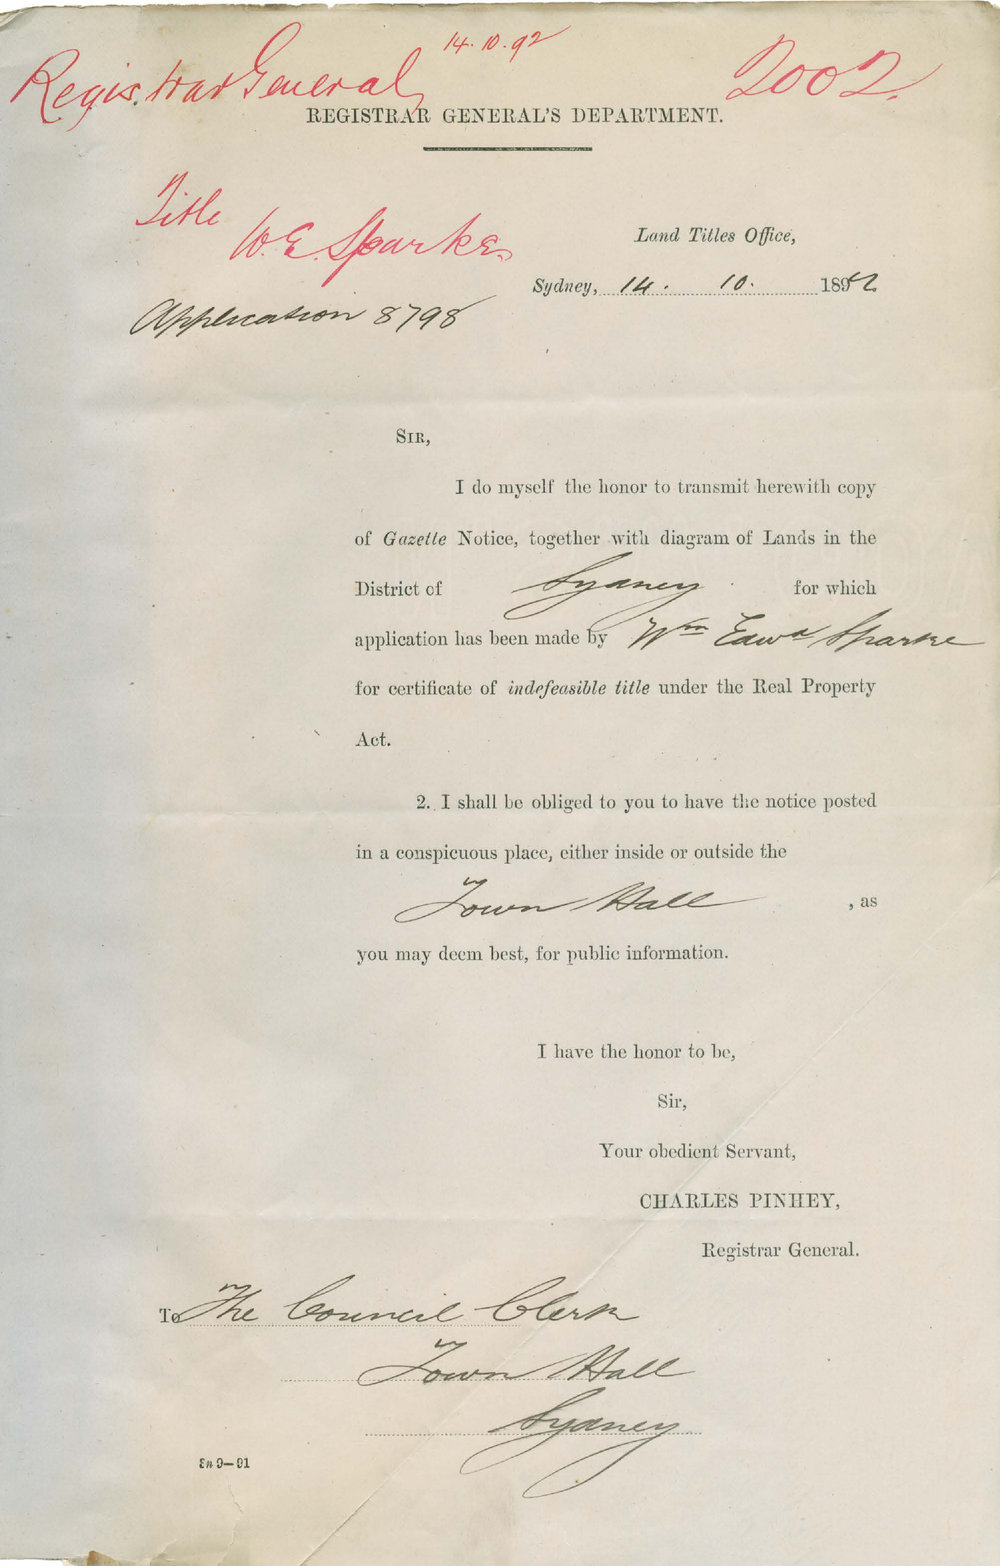 14.10.92
Registrar General
2002
REGISTRAR GENERAL'S DEPARTMENT.
Title
W.E. Sparke
Land Titles Office,
Sydney, 14. 10. 1892
Application 8798
SIR,
I do myself the honor to transmit herewith copy
of Gazette Notice, together with diagram of Lands in the
District of Sydney for which
application has been made by Wm Edwd Sparke
for certificate of indefeasible title under the Real Property
Act.
2. I shall be obliged to you to have the notice posted
in a conspicuous place, either inside or outside the
Town Hall, as
you may deem best, for public information.
I have the honor to be,
Sir,
Your obedient Servant,
CHARLES PINHEY,
Registrar General.
To The Council Clerk
Town Hall
Sydney
9—91